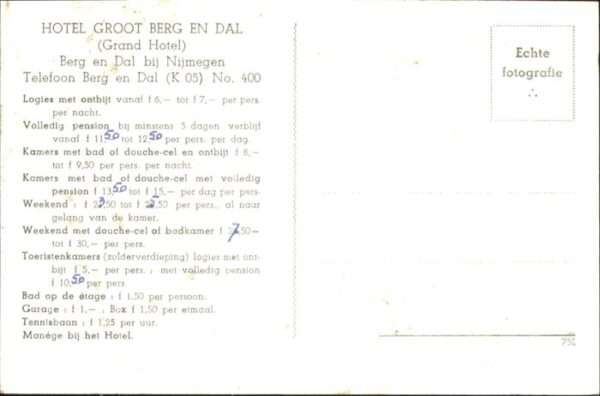 HOTEL GROOT BERG EN DAL
(Grand Hotel)
Berg en Dal bij Nijmegen
Telefoon Berg en Dal (K 05) No. 400
Logies met ontbijt vanaf f 6,— tot f 7,— per pers.
per nacht.
Volledig pension bij minstens 5 dagen verblijf
vanaf f 11,50 tot 12,50 per pers. per dag.
Kamers met bad of douche-cel en ontbijt f 8,—
tot f 9,50 per pers. per nacht.
Kamers met bad of douche-cel met volledig
pension f 13,50 tot f 15,— per dag per pers.
Weekend : f 50 tot f 50 per pers., al naar
gelang van de kamer.
Weekend met douche-cel of badkamer f 50—
tot f 30,— per pers.
Toeristenkamers (zolderverdieping) logies met ont-
bijt f 5,— per pers. ; met volledig pension
f 10,50 per pers.
Bad op de étage : f 1,50 per persoon.
Garage : f 1,— ; Box f 1,50 per etmaal.
Tennisbaan : f 1,25 per uur.
Manége bij het Hotel.
Echte
fotografie